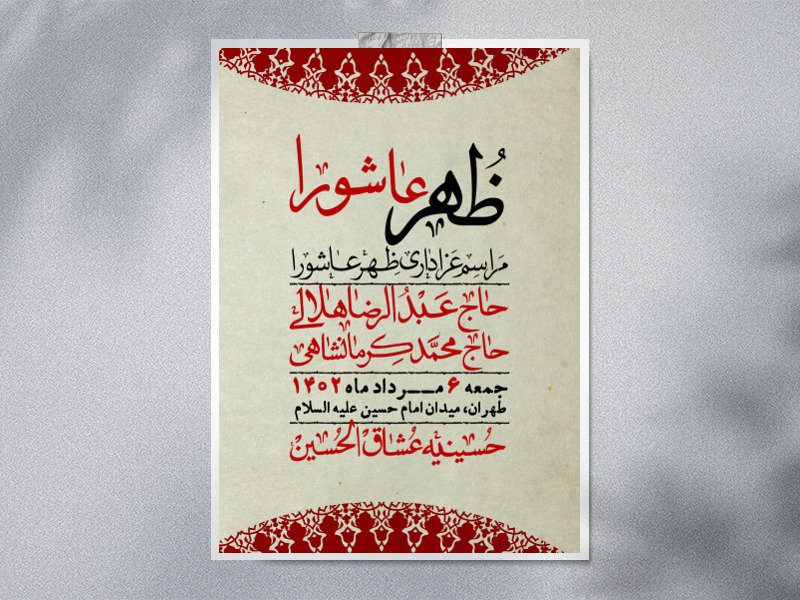 ظُهر عاشورا
مَراسِم عَزاداری ظِهر عاشورا
حاج عَبْدُالرضا هلالی
حاج محمّد کِرمانشاهی
جمعه ۶ مـــرداد ماه ۱۴۰۲
طهران، میدان امام حسین علیه السلام
حُسینیّه عُشّاق الحُسین